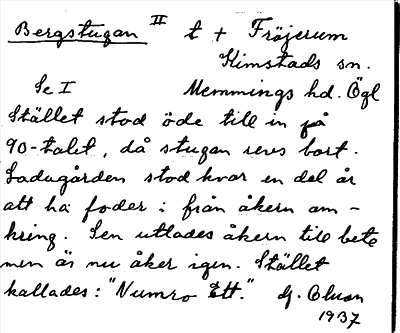 Bergstugan II t + Fröjerum
Kimstads sn.
Se I Memmings hd. Ögl
Stället stod öde till in på
90-talet, då stugan revs bort.
Ladugården stod kvar en del år
att ha foder i från åkern om-
kring. Sen utlades åkern till bete
men är nu åker igen. Stället
kallades: "Numro Ett." G.
1937